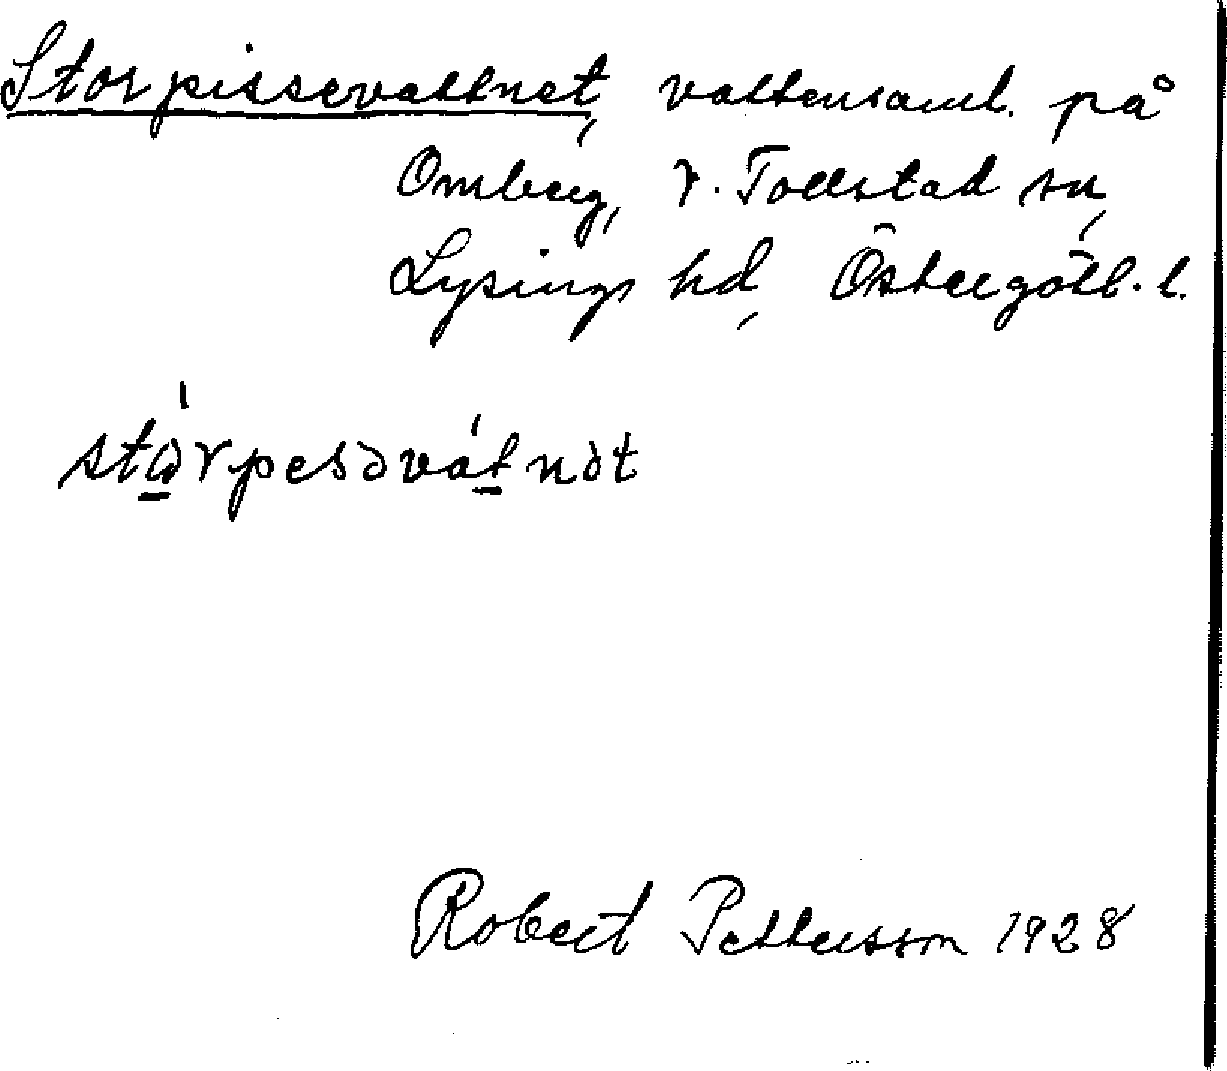 Storpissevattnet, vattensaml. på
Omberg, V. Tollstad sn,
Lysings hd, Östergötl. l.
stɷ̀rpesəvátnət
Robert Pettersson 1928